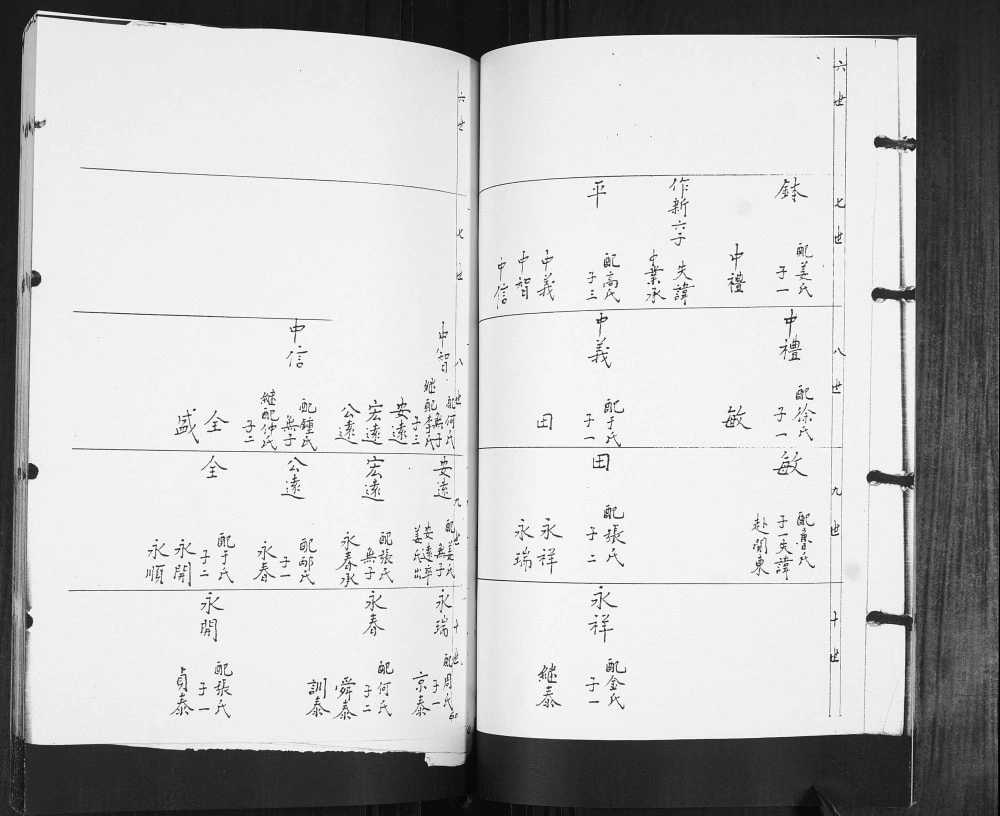 六世
七世
鉢
配姜氏
子一
中禮
作新
六子
失諱
中業承
平
配高氏
子三
中義
中智
中信
八世
中禮
配徐氏
子一
敏
中義
配于氏
子一
田
九世
敏
配魯氏
子一失諱
赴関東
田
配張氏
子二
永祥
永瑞
十世
永祥
配金氏
子一
継泰
六世
七世
八世
中智
配何氏
無子
継配李氏
子三
安遠
宏遠
公遠
中信
配鍾氏
無子
継配仲氏
子二
全
盛
九世
安遠
配姜氏
無子
安遠卒
姜氏出
宏遠
配張氏
無子
永春承
公遠
配邴氏
子一
永春
全
配于氏
子二
永開
永順
十世
永瑞
配周氏
子一
京泰
永春
配何氏
子二
舜泰
訓泰
永開
配張氏
子一
貞泰
60